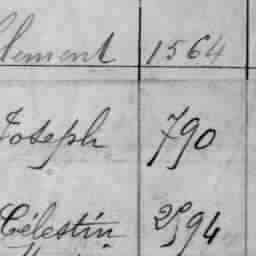 Clement 1564
Joseph 790
Célestin 2594